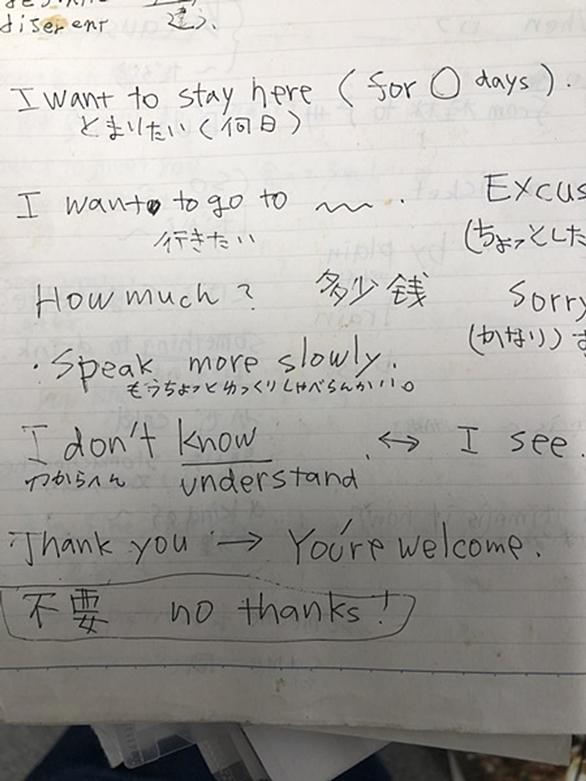 diserent 違う.
I want to stay here (for ○ days).
とまりたい(何日)
I want to go to 〜.
行きたい
Excus
(ちょっとした
How much? 多少銭
Sorry
(かなり)
・Speak more slowly.
もうちょっとゆっくりしゃべらんかい。
I don't know ↔ I see.
わからへん understand
Thank you → You're welcome.
不要 no thanks!